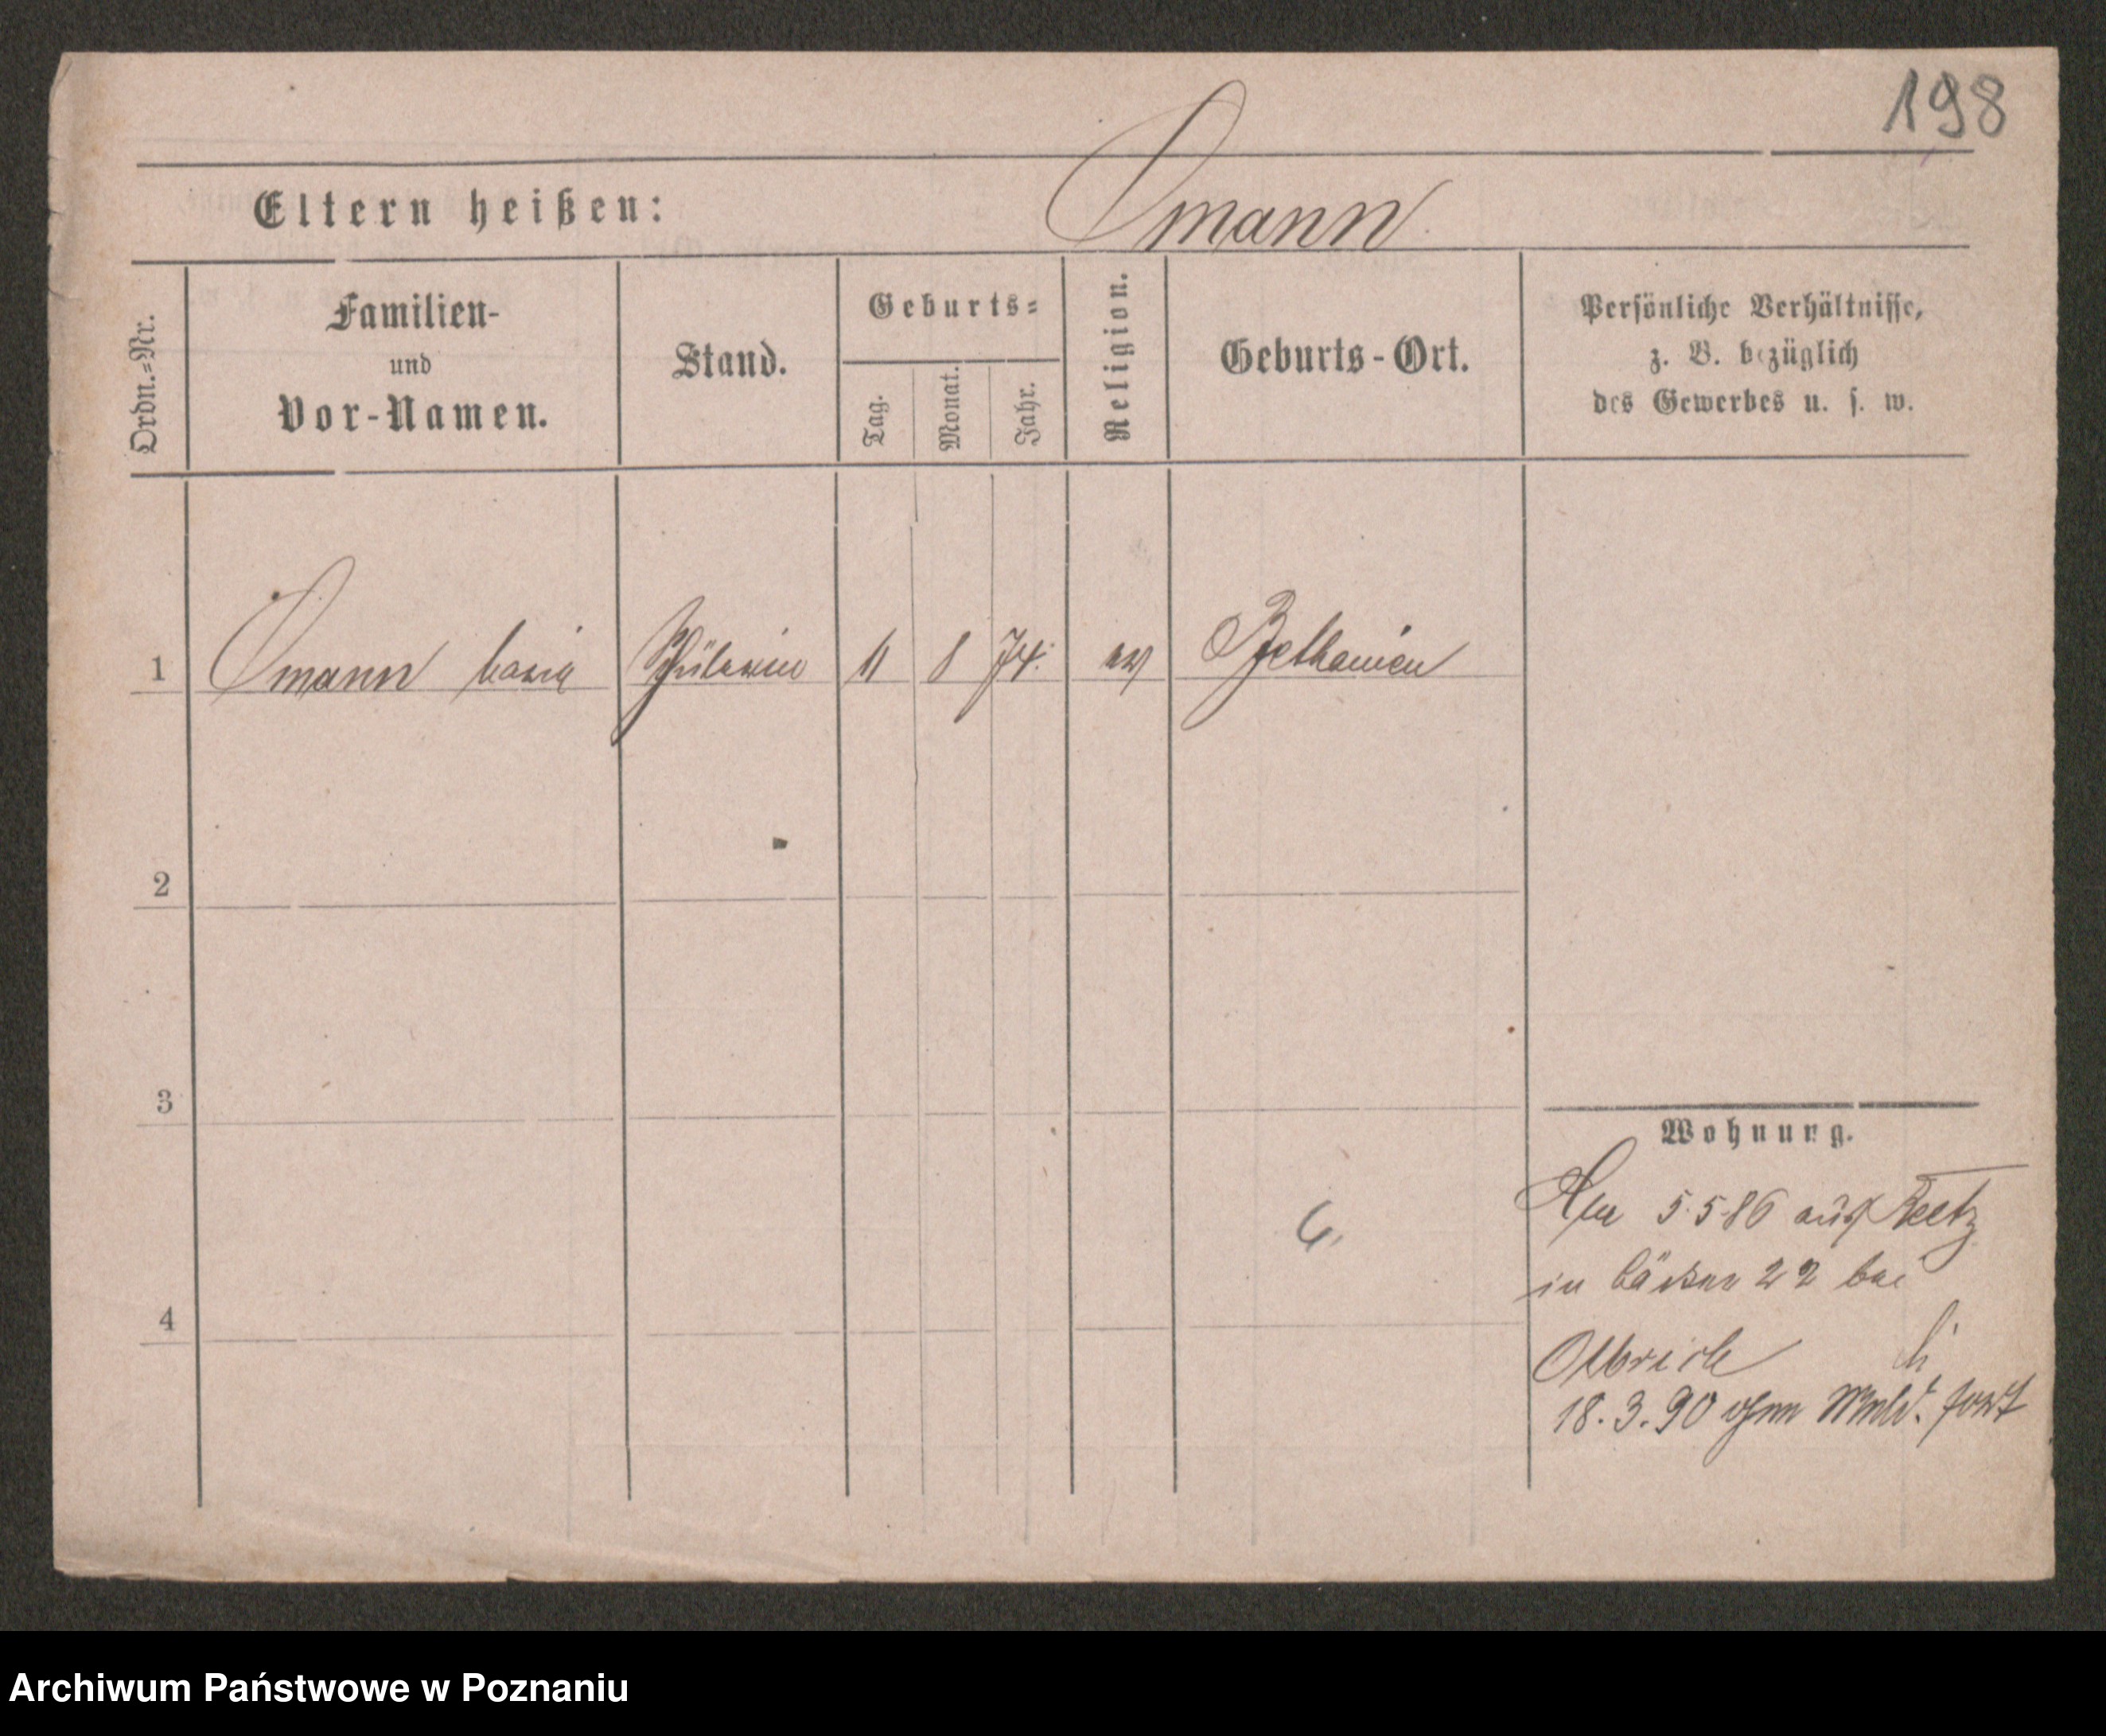 198
Eltern heißen: Omann
Ordn.-Nr.
Familien-
und
Vor-Namen.
Stand.
Geburts-
Tag.
Monat.
Jahr.
Religion.
Geburts-Ort.
Persönliche Verhältnisse,
z. B. bezüglich
des Gewerbes u. s. w.
1 Omann Schülerin 11 8 74. ev Bethanien
2
3
Wohnung.
5.5.86 aus Reetz
in 22 bei
4
Olbrich
18.3.90 ohne Meld. fort
Archiwum Państwowe w Poznaniu